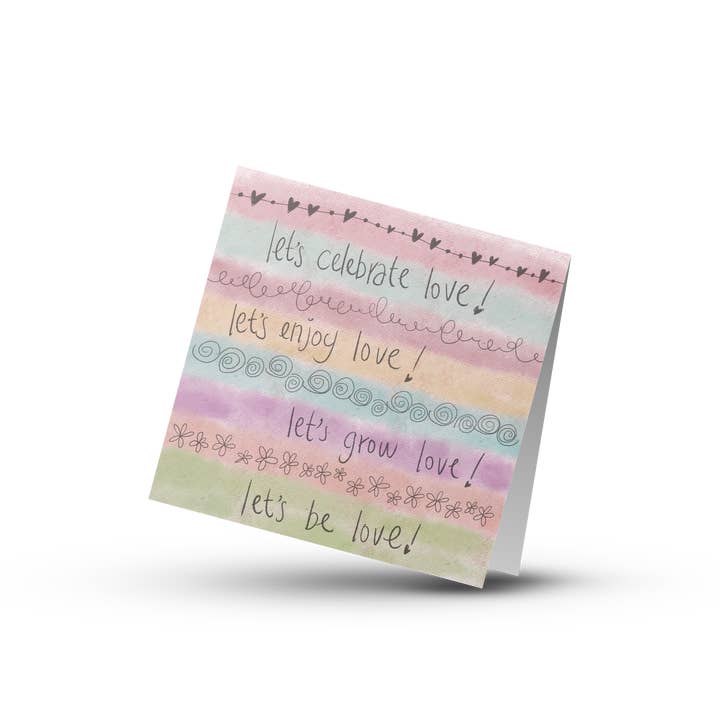 let's celebrate love!
let's enjoy love!
let's grow love!
let's be love!